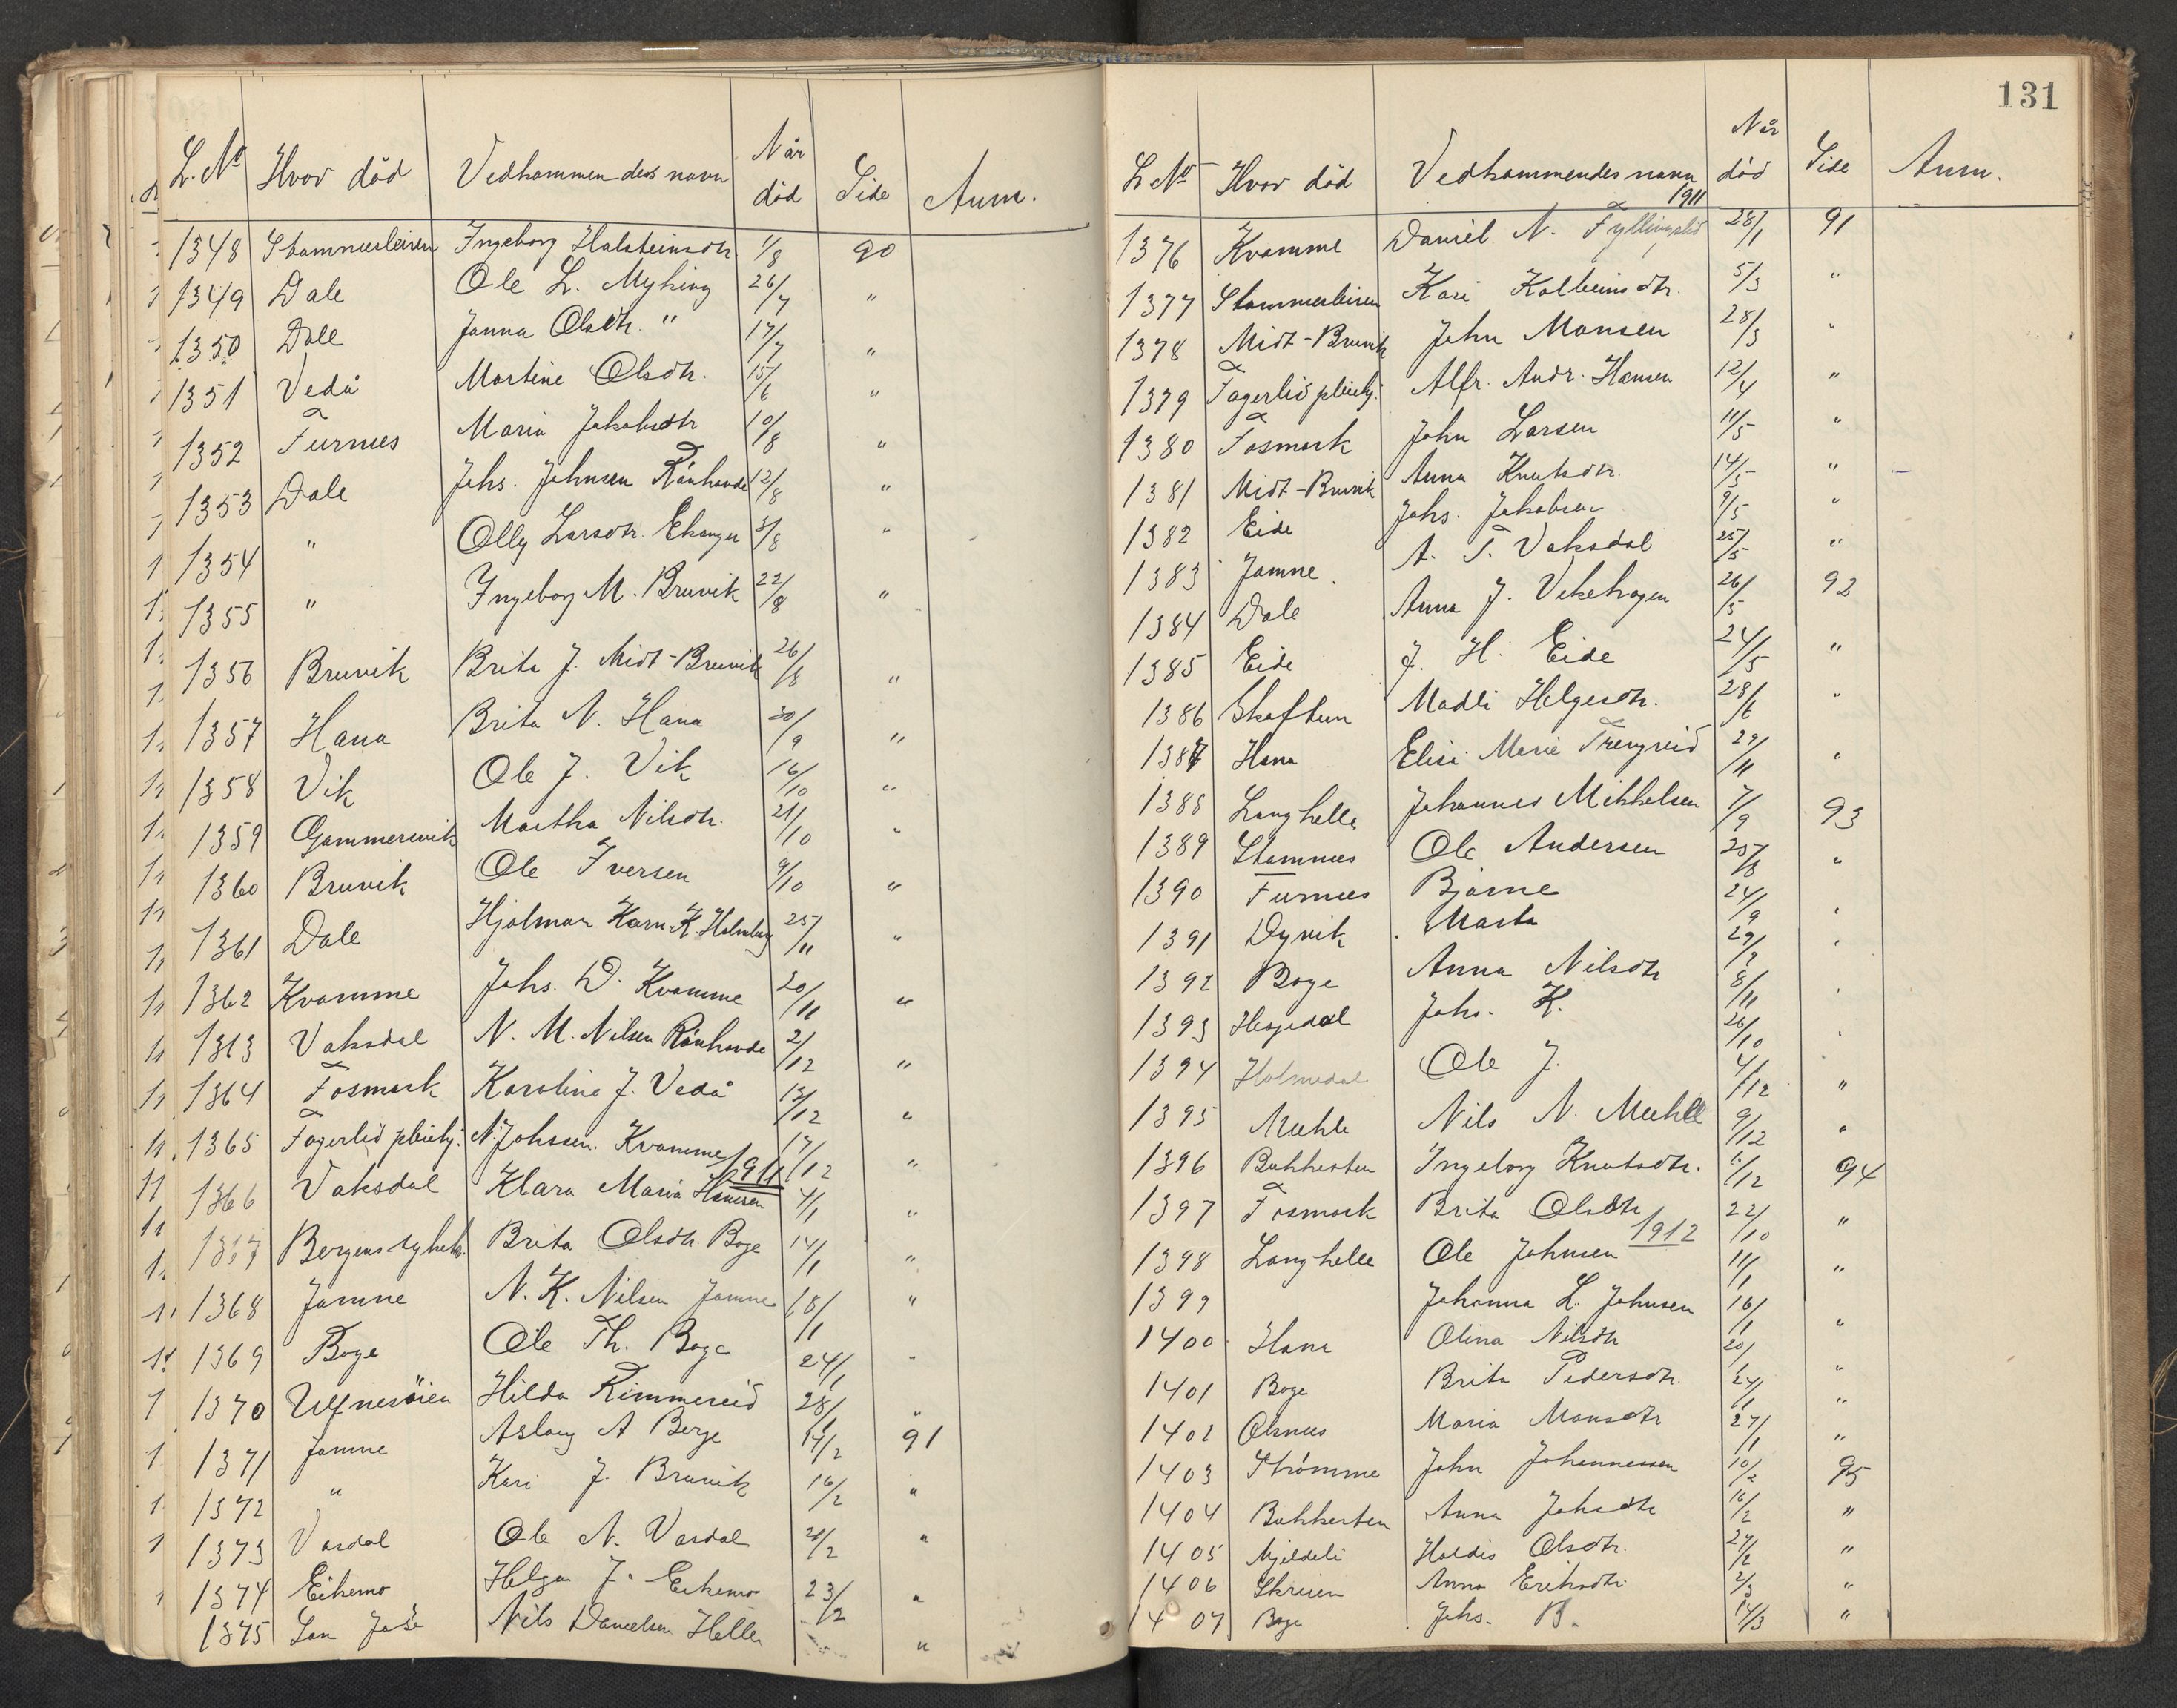 L. No Hvor död Vedkommendes navn Når död Side Anm.
1348 Stamnesleiren Ingeborg Halsteinsdtr 1/8 90
1349 Dale Ole L. Myking 26/7 "
1350 Dale Janna Olsdtr. " 17/7 "
1351 Vedå Martine Olsdtr. 15/6 "
1352 Furnes Maria Jakobsdtr 10/8 "
1353 Dale Johs. Johnsen Rånhovde 12/8 "
1354 " Olly Larsdtr. Ekanger 3/8 "
1355 " Ingeborg M. Bruvik 22/8 "
1356 Bruvik Brita J. Midt-Bruvik 26/8 "
1357 Hana Brita N. Hana 30/9 "
1358 Vik Ole J. Vik 16/10 "
1359 Gammersvik Martha Nilsdtr. 21/10 "
1360 Bruvik Ole Iversen 9/10 "
1361 Dale Hjalmar Karn. K. Holmberg 25/11 "
1362 Kvamme Johs. D. Kvamme 20/11 "
1363 Vaksdal N. M. Nilsen Rånhovde 2/12 "
1364 Fosmark Karoline J. Vedå 13/12 "
1365 Fagerlid pleiehj. N. Johssen. Kvamme 17/12 "
1911
1366 Vaksdal Klara Maria Hansen 4/1 "
1367 Bergens sykeh. Brita Olsdtr. Boge 14/1 "
1368 Jamne N. K. Nilsen Jamne 18/1 "
1369 Boge Ole Th. Boge 24/1 "
1370 Ulfnesöien Hilda Rimmereid 28/1 "
1371 Jamne Aslaug A Berge 14/2 91
1372 " Kari J. Bruvik 16/2 "
1373 Vardal Ole N. Vardal 21/2 "
1374 Eikemo Helga J. Eikemo 23/2 "
1375 San José Nils Danielsen Helle "
131
L No Hvor död Vedkommendes navn Når död Side Anm.
1911
1376 Kvamme Daniel N. Fyllingslid 28/1 91
1377 Stamnesleiren Kari Kolbeinsdtr. 5/3 "
1378 Midt-Bruvik John Monsen 28/3 "
1379 Fagerlid pleiehj. Alfr. Andr. Hansen 12/4 "
1380 Fosmark John Larsen 11/5 "
1381 Midt-Bruvik Anna Knutsdtr. 14/5 "
1382 Eide Johs. Jakobsen 9/5 "
1383 Jamne A. T. Vaksdal 25/5 "
1384 Dale Anna J. Vikehagen 26/5 92
1385 Eide J. H. Eide 24/5 "
1386 Skaftun Madli Helgesdtr. 28/6 "
1387 Hana Elise Marie Trengreid 29/11 "
1388 Langhelle Johannes Mikkelsen 7/9 93
1389 Stamnes Ole Andersen 25/8 "
1390 Furnes Bjarne 24/9 "
1391 Dyvik Marta 29/9 "
1392 Boge Anna Nilsdtr 8/11 "
1393 Hesjedal Johs. K. 26/10 "
1394 Holmedal Ole J. 4/12 "
1395 Mæhle Nils N. Mæhle 9/12 "
1396 Bukkesten Ingeborg Knutsdtr. 6/12 94
1397 Fosmark Brita Olsdtr 22/10 "
1912
1398 Langhelle Ole Johnsen 11/1 "
1399 Johanna L. Johnsen 16/1 "
1400 Hana Olina Nilsdtr 20/1 "
1401 Boge Brita Pedersdtr. 24/1 "
1402 Olsnes Maria Monsdtr 27/1 "
1403 Strömme John Johannessen 10/2 95
1404 Bukkesten Anna Johsdtr 16/2 "
1405 Mjeldeli Haldis Olsdtr. 27/2 "
1406 Skreien Anna Eriksdtr 2/3 "
1407 Boge Johs. B. 14/3 "